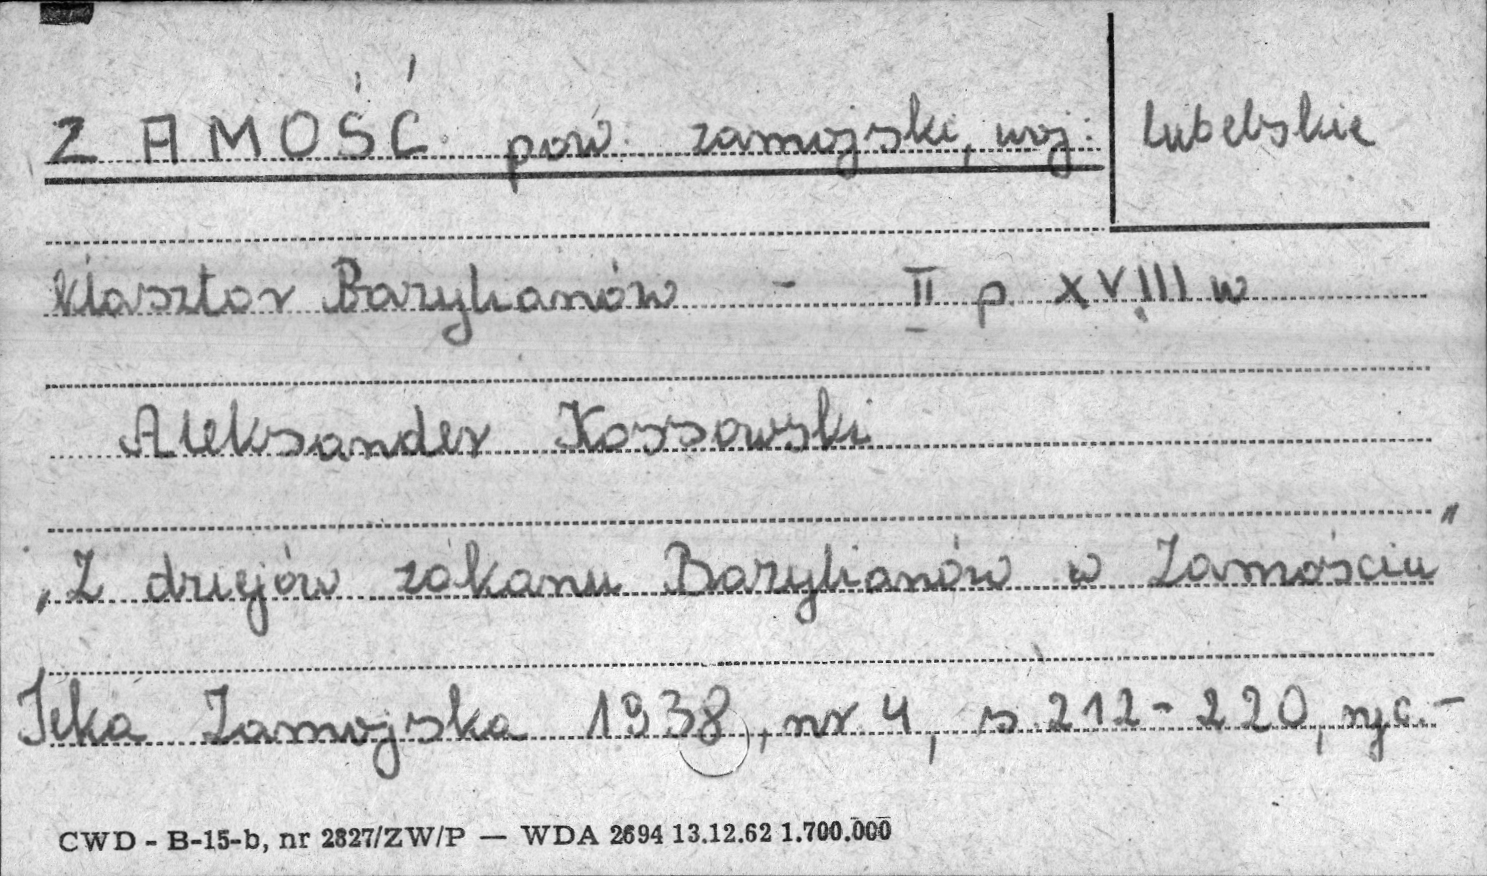 ZAMOŚĆ pow. zamojski, woj: lubelskie
klasztor Bazylianów - II p. XVIII w
Aleksander Kossowski
„Z dziejów zakonu Bazylianów w Zamościu"
Teka Zamojska 1938, nr 4, s. 212-220, ryc.-
CWD - B-15-b, nr 2827/ZW/P — WDA 2694 13.12.62 1.700.000